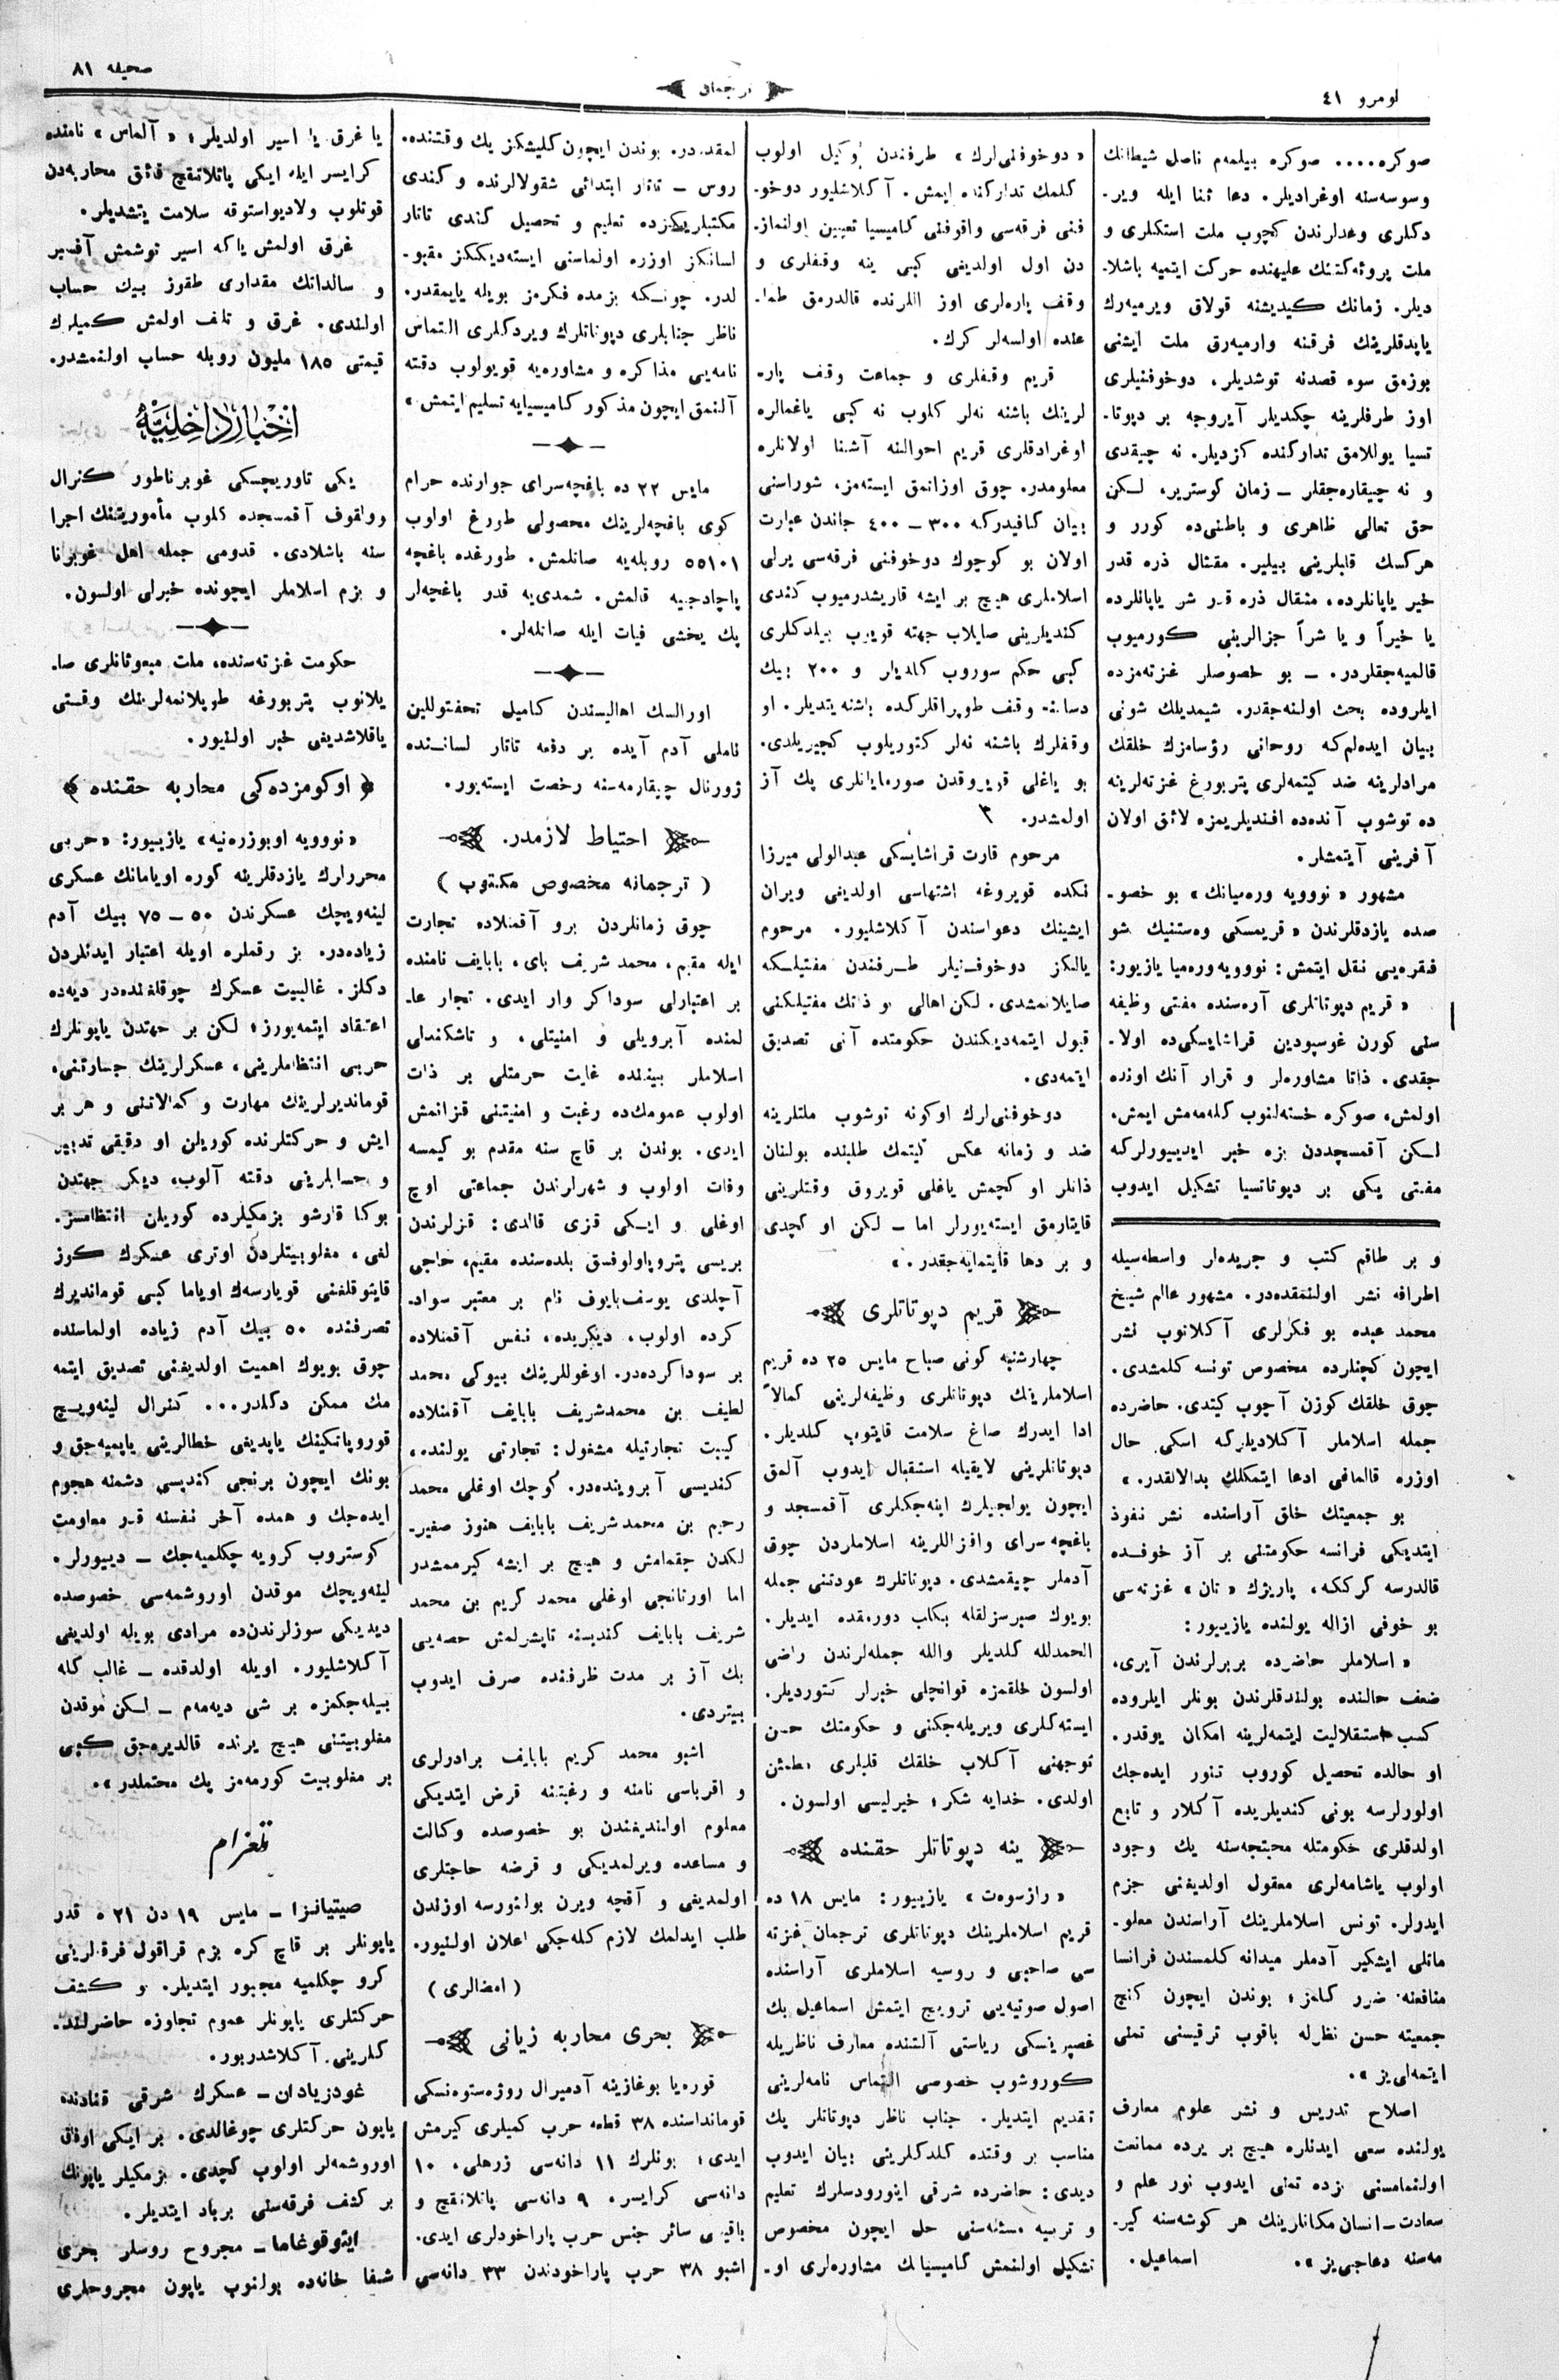 نومرو ٤١
ترجمان
صحيفه ٨١
صوكره.... صوكره بيلمم ناصل شيطانك
وسوسه‌سنه اوغراديلر. دعا ثنا ايله وير-
دكلرى وعدلرندن كچوب ملت استكلرى و
ملت پروئه‌كتنك عليهنده حركت ايتميه باشلا-
ديلر. زمانك كيديشنه قولاق ويرميه‌رك
ياپدقلرينك فرقنه وارميه‌رق ملت ايشنى
بوزمق سوء قصدنه توشديلر، دوخوفنيلرى
اوز طرفلرينه چكديلر آيروجه بر دپوتا-
تسيا يوللامق تداركنده كزديلر. نه چيقدى
و نه چيقاره‌جقلر ــ زمان كوسترير، لكن
حق تعالى ظاهرى و باطنى‌ده كورر و
هركسك قلبلرينى بيلير. مثقال ذره قدر
خير ياپانلرده، مثقال ذره قدر شر ياپانلرده
يا خيراً و يا شراً جزالرينى كورميوب
قالميه‌جقلردر. ــ بو خصوصلر غزته‌مزده
ايلروده بحث اولنه‌جقدر. شيمديلك شونى
بيان ايده‌لم كه روحانى رؤسامزك خلقك
مرادلرينه ضد كيتمه‌لرى پتربورغ غزته‌لرينه
ده توشوب آنده‌ده افنديلريمزه لائق اولان
آفرينى آيتمشلر.
مشهور «نوويه وره‌ميانك» بو خصو-
صده يازدقلرندن «قريمسكى وه‌ستنيك شو
فقره‌يى نقل ايتمش: نوويه‌وره‌ميا يازيور:
«قريم دپوتاتلرى آره‌سنده مفتى وظيفه
سنى كورن غوسپودين قراشايسكى‌ده اولا-
جقدى. ذاتا مشاوره‌لر و قرار آنك اونده
اولمش، صوكره خسته‌لنوب كلمه‌مش ايمش.
لكن آقمسجددن بزه خبر ايدييورلركه
مفتى يكى بر دپوتاتسيا تشكيل ايدوب
و بر طاقم كتب و جريده‌لر واسطه‌سيله
اطرافه نشر اولنمقده‌در. مشهور عالم شيخ
محمد عبده بو فكرلرى آكلاتوب نشر
ايچون كچنلرده مخصوص تونسه كلمشدى.
چوق خلقك كوزن آچوب كيتدى. حاضرده
جمله اسلاملر آكلاديلركه اسكى حال
اوزره قالمانى ادعا ايتمكلك بدالالقدر.»
بو جمعيتك خلق آراسنده نشر نفوذ
ايتديكى فرانسه حكومتنى بر آز خوفده
قالدرسه كرككه، پاريژك «تان» غزته‌سى
بو خوفى ازاله يولنده يازييور:
«اسلاملر حاضرده بربرلرندن آيرى،
ضعف حالنده بولندقلرندن بونلر ايلروده
كسب استقلاليت ايتمه‌لرينه امكان يوقدر.
او حالده تحصيل كوروب تنور ايده‌جك
اولورلرسه بونى كنديلريده آكلار و تابع
اولدقلرى حكومتله محبتجه‌سنه يك وجود
اولوب ياشامه‌لرى معقول اولديغنى جزم
ايدرلر. تونس اسلاملرينك آراسندن معلو-
ماتلى ايشكير آدملر ميدانه كلمسندن فرانسا
منافعنه ضرر كلمز؛ بوندن ايچون كنج
جمعيته حسن نظرله باقوب ترقيسنى تمنى
ايتمه‌لى‌يز.»
اصلاح تدريس و نشر علوم معارف
يولنده سعى ايدنلره هيچ بر يرده ممانعت
اولنمامسنى بزده تمنى ايدوب نور علم و
سعادت ــ انسان مكانلرينك هر كوشه‌سنه كير-
مه‌سنه دعاجى‌يز». اسماعيل.
«دوخوفنى‌لرك» طرفندن وكيل اولوب
كلمك تداركنده ايمش. آكلاشليور دوخو-
فنى فرقه‌سى واقوفنى كاميسيا تعيين اولنماز-
دن اول اولديغى كبى ينه وقفلرى و
وقف پاره‌لرى اوز اللرنده قالدرمق طما-
عنده اولسه‌لر كرك.
قريم وقفلرى و جماعت وقف پاره
لرينك باشنه نه‌لر كلوب نه كبى ياغمالره
اوغرادقلرى قريم احوالنه آشنا اولانلره
معلومدر. چوق اوزانمق ايسته‌مز، شوراسنى
بيان كافيدركه ٣٠٠ ــ ٤٠٠ جاندن عبارت
اولان بو كوچوك دوخوفنى فرقه‌سى يرلى
اسلاملرى هيچ بر ايشه قاريشدرميوب كندى
كنديلرينى صايلاب جهته قويوب بيلدكلرى
كبى حكم سوروب كلديلر و ٢٠٠ بيك
دساتنه وقف طوپراقلركده باشنه يتديلر. او
وقفلرك باشنه نه‌لر كتوريلوب كچيريلدى.
بو ياغلى قويروقدن صوره‌مايانلرى پك آز
اولمشدر.
مرحوم قارت قراشايسكى عبدالولى ميرزا
نكده قويروغه اشتهاسى اولديغى ويران
ايشينك دعواسندن آكلاشليور. مرحوم
يالكز دوخوفنيلر طرفندن مفتيلكه
صايلانمشدى. لكن اهالى بو ذاتك مفتيلكنى
قبول ايتمه‌ديكندن حكومتده آنى تصديق
ايتمه‌دى.
دوخوفنى‌لرك اوكونه توشوب ملتلرينه
ضد و زمانه عكس كيتمك طلبنده بولنان
ذاتلر او كچمش ياغلى قويروق وقتلرينى
قايتارمق ايسته‌يورلر اما ــ لكن او كچدى
و بر دها قايتمايه‌جقدر.»
قريم دپوتاتلرى
چهارشنبه كونى صباح مايس ٢٥ ده قريم
اسلاملرينك دپوتاتلرى وظيفه‌لرينى كمالاً
ادا ايدرك صاغ سلامت قايتوب كلديلر.
دپوتاتلرينى لايقيله استقبال ايدوب آلمق
ايچون يولجيلرك اينه‌جكلرى آقمسجد و
باغچه‌سراى واقزاللرينه اسلاملردن چوق
آدملر چيقمشدى. دپوتاتلرك عودتنى جمله
بويوك صبرسزلقله بكلب دورمقده ايديلر.
الحمدلله كلديلر والله جمله‌لرندن راضى
اولسون خلقمزه قوانچلى خبرلر كتورديلر.
ايسته‌كلرى ويريله‌جكنى و حكومتك حسن
توجهنى آكلاب خلقك قلبلرى مطمئن
اولدى. خدايه شكر؛ خيرليسى اولسون.
ينه دپوتاتلر حقنده
«رازسوه‌ت» يازييور: مايس ١٨ ده
قريم اسلاملرينك دپوتاتلرى ترجمان غزته
سى صاحبى و روسيه اسلاملرى آراسنده
اصول صوتيه‌يى ترويج ايتمش اسماعيل بك
غصپرينسكى رياستى آلتنده معارف ناظريله
كوروشوب خصوصى التماس نامه‌لرينى
تقديم ايتديلر. جناب ناظر دپوتاتلر يك
مناسب بر وقتده كلدكلرينى بيان ايدوب
ديدى: حاضرده شرقى اينورودسلرك تعليم
و تربيه مسئله‌سنى حل ايچون مخصوص
تشكيل اولنمش كاميسيانك مشاوره‌لرى او-
لمقده‌در. بوندن ايچون كليشكز پك وقتنده.
روس ــ تاتار ابتدائى شقولالرنده و كندى
مكتبلريكزده تعليم و تحصيل كندى تاتار
لسانكز اوزره اولماسنى ايسته‌ديككز مقبو-
لدر. چونكه بزمده فكرمز بويله ياپمقدر.
ناظر جنابلرى دپوتاتلرك ويردكلرى التماس
نامه‌يى مذاكره و مشاوره‌يه قويولوب دقته
آلنمق ايچون مذكور كاميسيايه تسليم ايتمش.»
مايس ٢٢ ده باغچه‌سراى جوارنده حرام
كوى باغچه‌لرينك محصولى طورغ اولوب
٥٥١٠١ روبله‌يه صاتلمش. طورغده باغچه
پاچادجيه قالمش. شمدى‌يه قدر باغچه‌لر
پك يخشى فيات ايله صاتله‌لر.
اورالسك اهاليسندن كاميل تحفتوللين
ناملى آدم آيده بر دفعه تاتار لساننده
ژورنال چيقارمه‌سنه رخصت ايسته‌يور.
احتياط لازمدر.
(ترجمانه مخصوص مكتوب)
چوق زمانلردن برو آقمنلاده تجارت
ايله مقيم، محمد شريف باى، بابايف نامنده
بر اعتبارلى سوداكر وار ايدى. تجار عا-
لمنده آبرويلى و امنيتلى، و تاشكندلى
اسلاملر بيننده غايت حرمتلى بر ذات
اولوب عمومك‌ده رغبت و امنيتنى قزانمش
ايدى. بوندن بر قاچ سنه مقدم بو كيمسه
وفات اولوب و شهرلرندن جماعتى اوچ
اوغلى و ايكى قزى قالدى: قزلرندن
بريسى پتروپاولوفسق بلده‌سنده مقيم، حاجى
آچلدى يوسف‌بايوف نام بر معتبر سوداـ
كرده اولوب، ديكريده، نفس آقمنلاده
بر سوداكرده‌در. اوغوللرينك بيوكى محمد
لطيف بن محمدشريف بابايف آقمنلاده
كيبت تجارتيله مشغول: تجارتى يولنده،
كنديسى آبروينده‌در. كوچك اوغلى محمد
رحيم بن محمد شريف بابايف هنوز صغير-
لكدن چقمامش و هيچ بر ايشه كيرممشدر
اما اورتانجى اوغلى محمد كريم بن محمد
شريف بابايف كنديسنه تاپشرلمش حصه‌يى
بك آز بر مدت ظرفنده صرف ايدوب
بيتردى.
اشبو محمد كريم بابايف برادرلرى
و اقرباسى نامنه و رغبتنه قرض ايتديكى
معلوم اولنديغندن بو خصوصده وكالت
و مساعده ويرلمديكى و قرضه حاجتلرى
اولمديغى و آقچه ويرن بولنورسه اوزندن
طلب ايدلمك لازم كله‌جكى اعلان اولنيور.
(امضالرى)
بحرى محاربه زيانى
قوره‌يا بوغازينه آدميرال روژه‌ستوه‌نسكى
قومانداسنده ٣٨ قطعه حرب كميلرى كيرمش
ايدى؛ بونلرك ١١ دانه‌سى زرهلى، ١٠
دانه‌سى كرايسر، ٩ دانه‌سى پاتلانقچ و
باقيسى سائر جنس حرب پاراخودلرى ايدى.
اشبو ٣٨ حرب پاراخودندن ٣٣ دانه‌سى
يا غرق يا اسير اولديلر؛ «آلماس» نامنده
كرايسر ايله ايكى پاتلانقچ قاتى محاربه‌دن
قوتلوب ولاديواستوقه سلامت يتشديلر.
غرق اولمش ياكه اسير توشمش آفسير
و سالداتك مقدارى طقوز بيك حساب
اولندى. غرق و تلف اولمش كميلرك
قيمتى ١٨٥ مليون روبله حساب اولنمشدر.
اخبار داخليه
يكى تاوريچسكى غوبرناطور كنرال
وولقوف آقمسجده كلوب مأموريتنك اجرا
سنه باشلادى. قدومى جمله اهل غوبرنا
و بزم اسلاملر ايچونده خيرلى اولسون.
حكومت غزته‌سنده، ملت مبعوثانلرى صا-
يلانوب پتربورغه طوپلانمه‌لرينك وقتى
ياقلاشديغى خبر اولنيور.
﴿اوكومزده‌كى محاربه حقنده﴾
«نوويه اوبوزره‌نيه» يازييور: «حربى
محررلرك يازدقلرينه كوره اويامانك عسكرى
لينه‌ويچك عسكرندن ٥٠ ــ ٧٥ بيك آدم
زياده‌در. بز رقملره اويله اعتبار ايدنلردن
دكلز. غالبيت عسكرك چوقلغنده‌در ديه‌ده
اعتقاد ايتمه‌يورز؛ لكن بر جهتدن ياپونلرك
حربى انتظاملرينى، عسكرلرينك جسارتنى،
قوماندیرلرينك مهارت و كمالاتنى و هر بر
ايش و حركتلرنده كوريلن او دقيقى تدبير
و حسابلرينى دقته آلوب، ديكر جهتدن
بوكا قارشو بزمكيلرده كوريلن انتظامسز-
لغى، مغلوبيتلردن اوترى عسكرك كوز
قايتوقلغنى قويارسه‌ك اوياما كبى قوماندیرك
تصرفنده ٥٠ بيك آدم زياده اولماسنده
چوق بويوك اهميت اولديغنى تصديق ايتمه
مك ممكن دكلدر... كنرال لينه‌ويچ
قوروپاتكينك ياپديغى خطالرينى ياپميه‌جق و
بونك ايچون برنجى كنديسى دشمنه هجوم
ايده‌جك و همده آخر نفسنه قدر مقاومت
كوستروب كرويه چكلميه‌جك ــ دييورلر.
لينه‌ويچك موقدن اوروشمه‌سى خصوصده
ديديكى سوزلرندن‌ده مرادى بويله اولديغى
آكلاشليور. اويله اولدقده ــ غالب كله
بيله‌جكمزه بر شى ديه‌مم ــ لكن موقدن
مغلوبيتنى هيچ يرنده قالديره‌جق كبى
بر مغلوبيت كورمه‌مز پك محتملدر».
تلغرام
صيتپانزا ــ مايس ١٩ دن ٢١ ه قدر
ياپونلر بر قاچ كره بزم قراقول فرقه‌لرينى
كرو چكلميه مجبور ايتديلر. و كشف
حركتلرى ياپونلر عموم تجاوزه حاضرلند-
كلرينى آكلاشدريور.
غودزيادان ــ عسكرك شرقى قنادنده
ياپون حركتلرى چوغالدى. بر ايكى اوفاق
اوروشمه‌لر اولوب كچدى. بزمكيلر ياپونك
بر كشف فرقه‌سنى برباد ايتديلر.
ايتوقوغاما ــ مجروح روسلر بحرى
شفا خانه‌ده بولنوب ياپون مجروحلرى